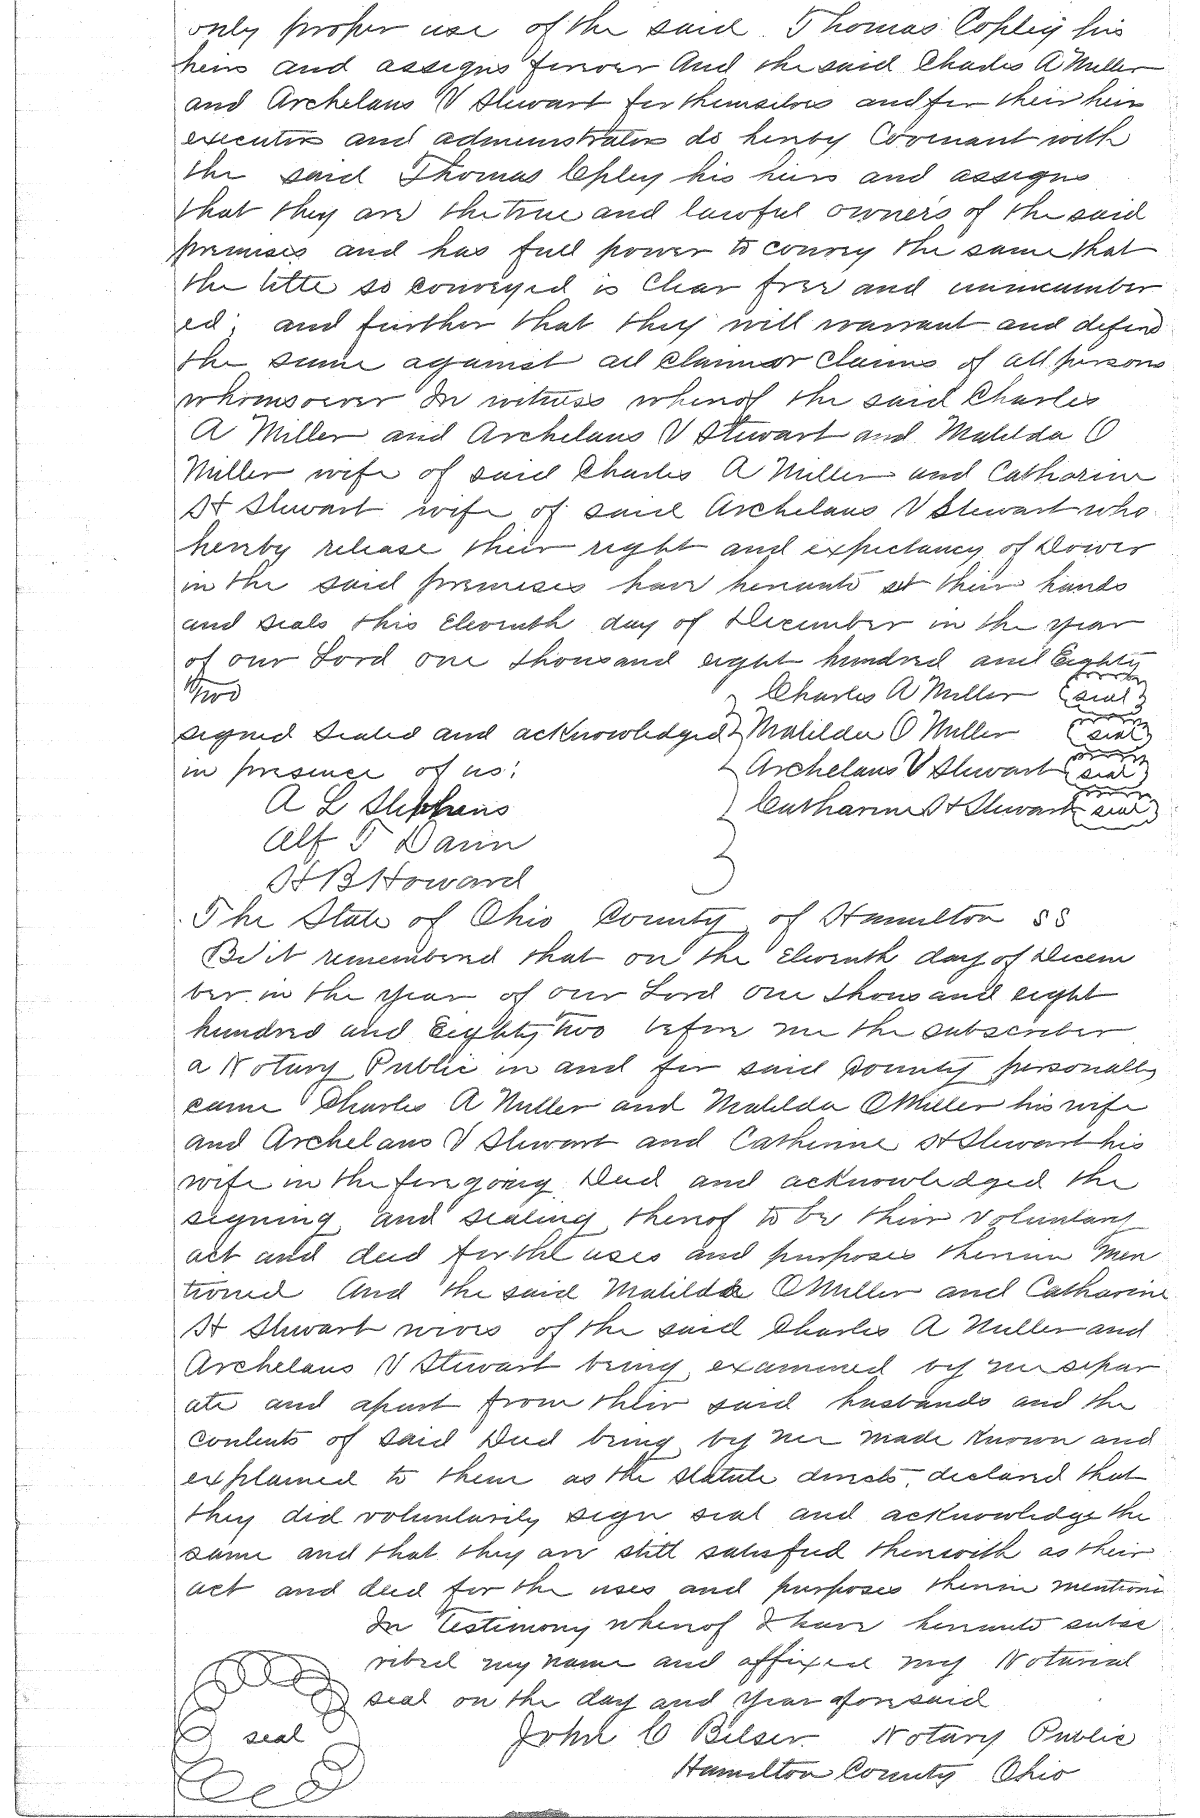 only proper use of the said Thomas Copley his
heirs and assigns forever And the said Charles A Miller
and Archelaus V Stewart for themselves and for their heirs
executors and administrators do hereby Covenant with
the said Thomas Copley his heirs and assigns
that they are the true and lawful owners of the said
premises and has full power to convey the same that
the title so conveyed is Clear free and unincumber
ed; and further that they will warrant and defend
the same against all claim or claims of all persons
whomsoever In witness whereof the said Charles
A Miller and Archelaus V Stewart and Matilda O
Miller wife of said Charles A Miller and Catharine
H Stewart wife of said Archelaus V Stewart who
hereby release their right and expectancy of Dower
in the said premises have hereunto set their hands
and seals this Eleventh day of December in the year
of our Lord one thousand eight hundred and Eighty
Two Charles A Miller (seal)
signed sealed and acknowledged Matilda O Miller (seal)
in presence of us: Archelaus V Stewart (seal)
A L Stephens Catharine H Stewart (seal)
Alf T
H B Howard
The State of Ohio County of Hamilton SS
Be it remembered that on the Eleventh day of Decem
ber in the year of our Lord one thousand eight
hundred and Eighty Two before me the subscriber
a Notary Public in and for said County personally
came Charles A Miller and Matilda O Miller his wife
and Archelaus V Stewart and Catherine H Stewart his
wife in the foregoing Deed and acknowledged the
signing and sealing thereof to be their voluntary
act and deed for the uses and purposes therein Men
tioned And the said Matilda O Miller and Catharine
H Stewart wives of the said Charles A Miller and
Archelaus V Stewart being examined by me separ
ate and apart from their said husbands and the
contents of said Deed being by me made Known and
explained to them as the statute directs, declared that
they did voluntarily sign seal and acknowledge the
same and that they are still satisfied therewith as their
act and deed for the uses and purposes therein mentione
In Testimony whereof I have hereunto subsc
ribed my name and affixed my Notarial
seal on the day and year aforesaid
seal John C Belser Notary Public
Hamilton County Ohio